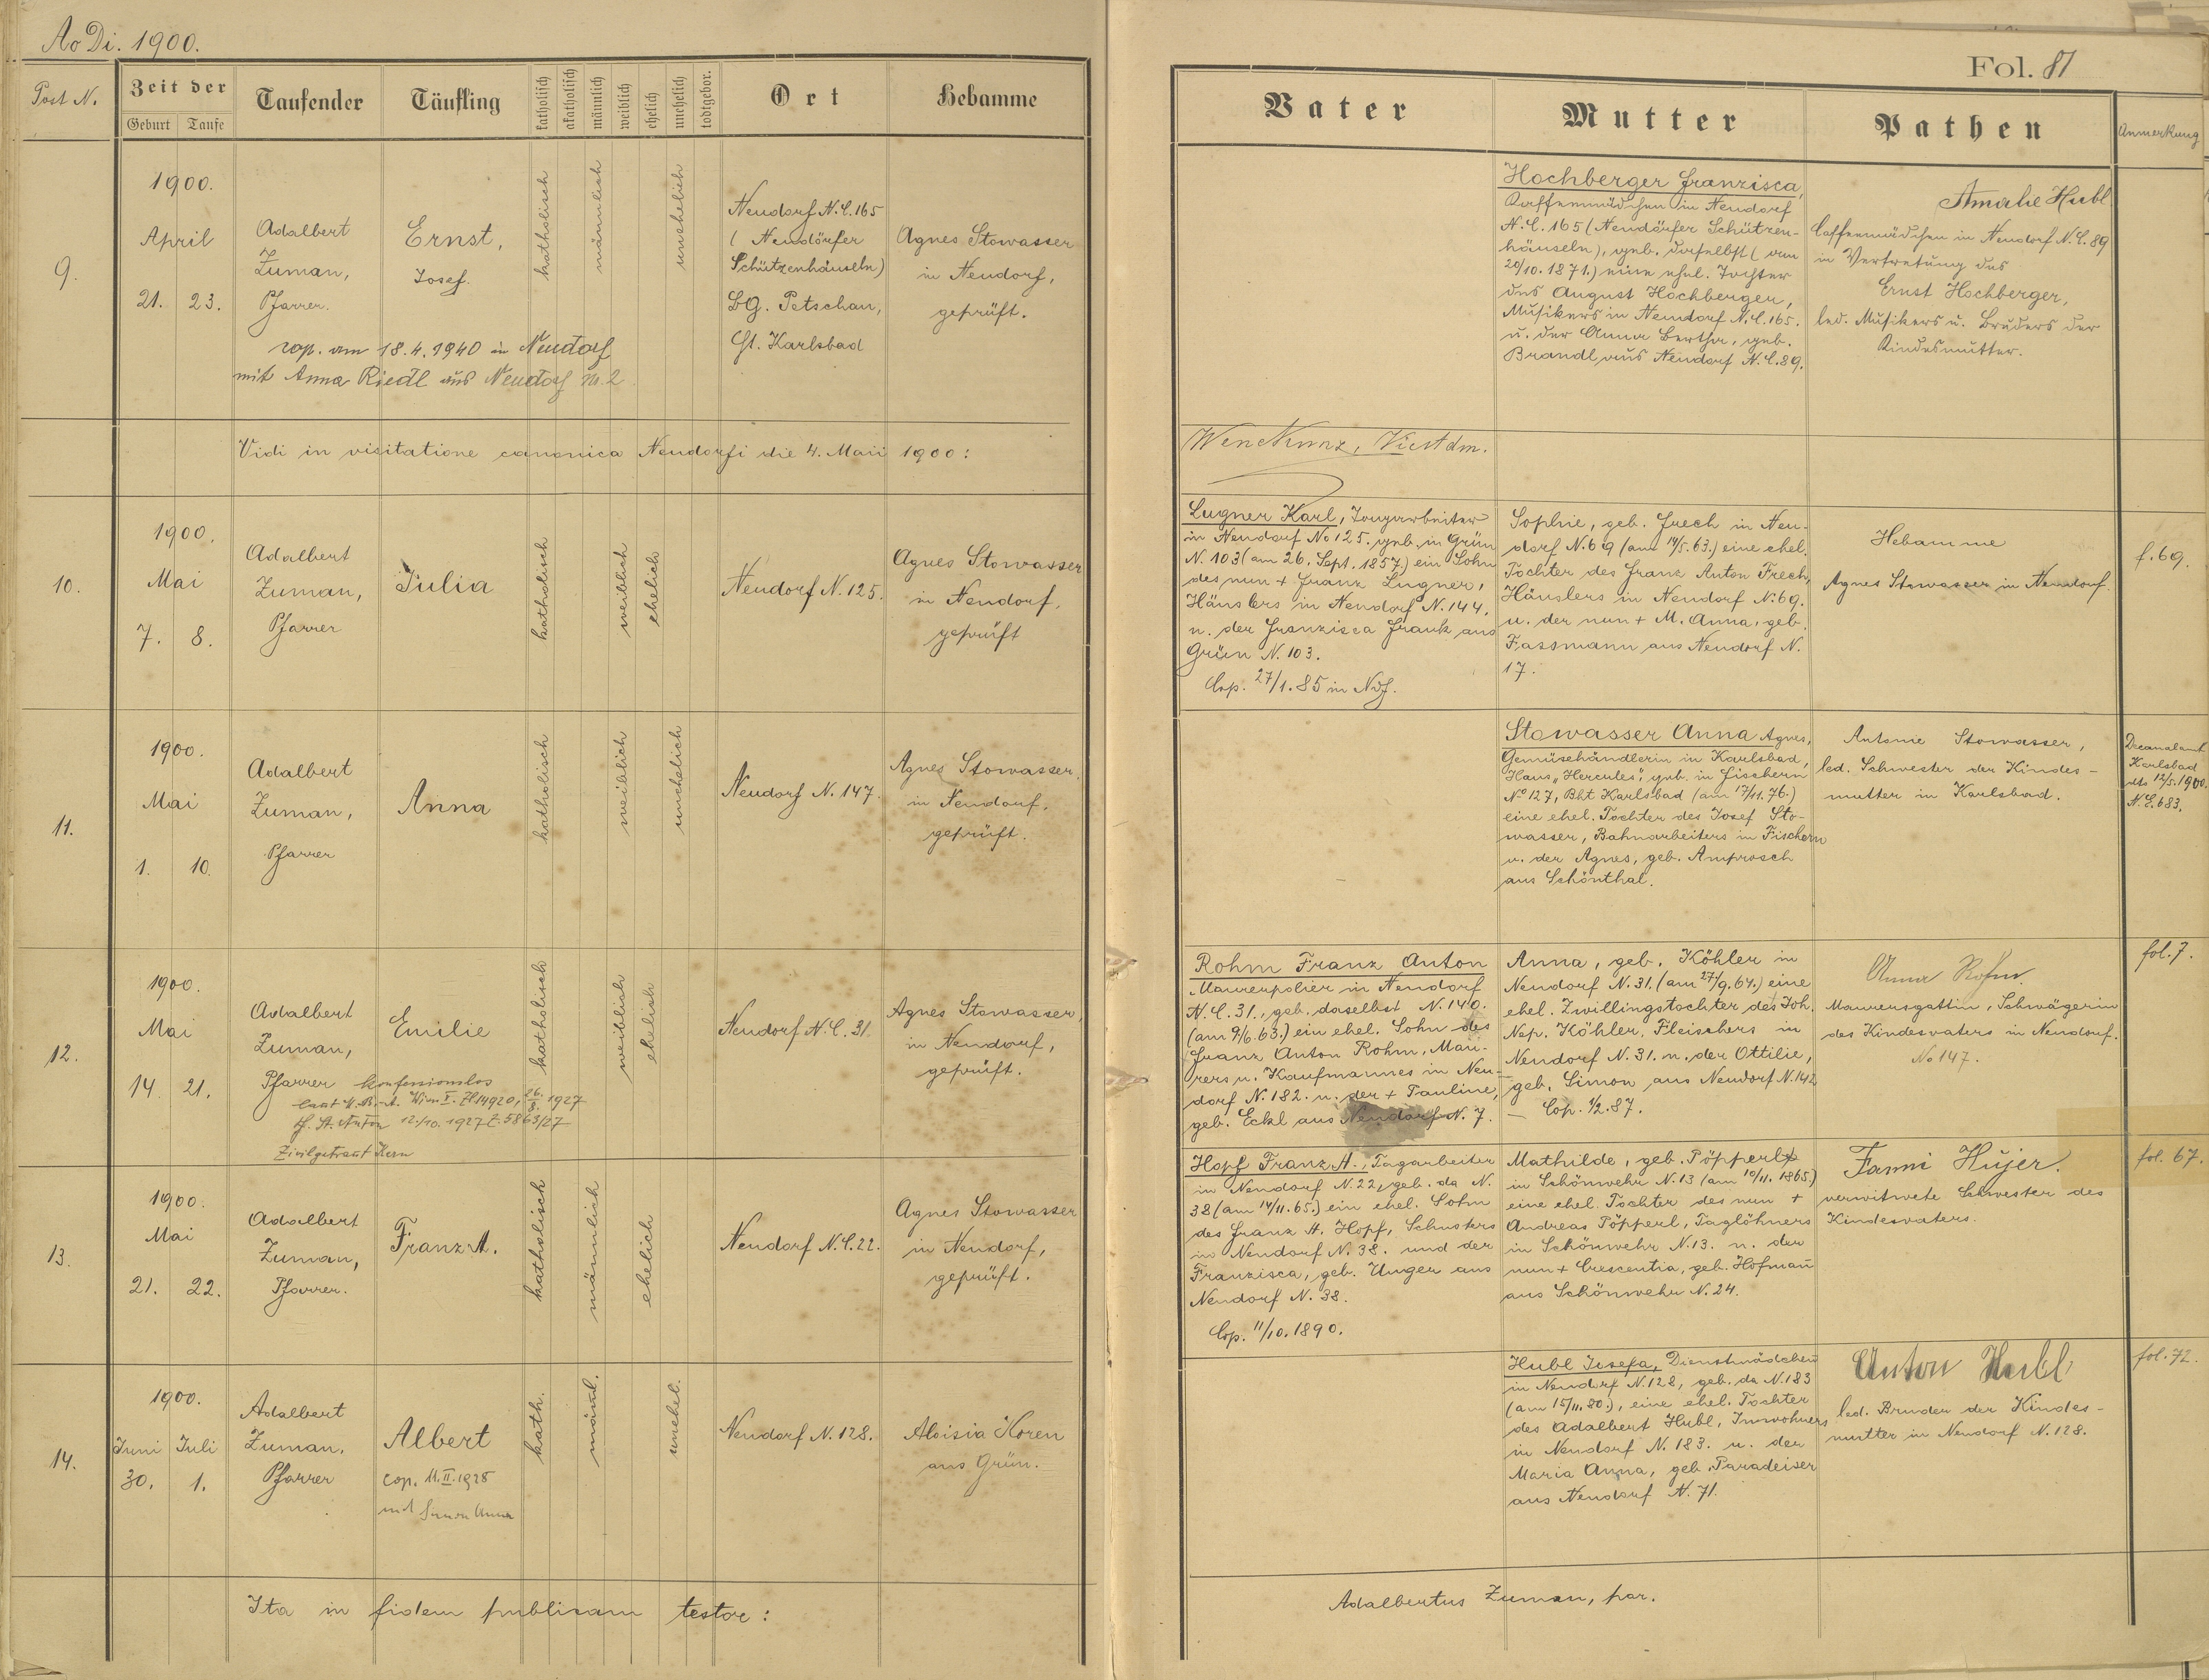 Ao Di. 1900.
Post N.
Zeit der
Geburt Taufe
Taufender
Täufling
katholisch
akatholisch
männlich
weiblich
ehelich
unehelich
todtgebor.
Ort
Hebamme
Fol. 81
Vater
Mutter
Pathen
Anmerkung
9.
1900.
April
21. 23.
Adalbert
Zuman,
Pfarrer.
Ernst,
Josef.
cop. am 18.4.1940 in Neudorf
mit Anna Riedl aus Neudorf Nr. 2
katholisch
männlich
unehelich
Neudorf N.C. 165
(Neudörfer
Schützenhäuseln)
BG. Petschau,
Gt. Karlsbad
Agnes Stowasser
in Neudorf,
geprüft.
Hochberger Franzisca,
Kaffeemädchen in Neudorf
N.C. 165 (Neudörfer Schützen-
häuseln), geb. daselbst (am
20/10. 1871.) eine ehel. Tochter
des August Hochberger,
Musikers in Neudorf N.C. 165.
u. der Anna Bertha, geb.
Brandl aus Neudorf N.C. 89.
Amalie Hubl
Caffeemädchen in Neudorf N.C. 89
in Vertretung des
Ernst Hochberger,
led. Musikers u. Bruders der
Kindesmutter.
Vidi in visitatione canonica Neudorfi die 4. Maii 1900:
Wenc Kunz, Vicstdm.
10.
1900.
Mai
7. 8.
Adalbert
Zuman,
Pfarrer
Julia
katholisch
weiblich
ehelich
Neudorf N. 125.
Agnes Stowasser
in Neudorf,
geprüft
Lugner Karl, Tagarbeiter
in Neudorf No 125. geb. in Grün
N. 103 (am 26. Sept. 1857.) ein Sohn
des nun + Franz Lugner,
Häuslers in Neudorf N. 144.
u. der Franzisca Frank aus
Grün N. 103.
Cop. 27/1. 85 in Ndf.
Sophie, geb. Frech in Neu-
dorf N. 69 (am 14/5. 63.) eine ehel.
Tochter des Franz Anton Frech,
Häuslers in Neudorf N. 69.
u. der nun + M. Anna, geb.
Fassmann aus Neudorf N.
17.
Hebamme
Agnes Stowasser in Neudorf.
f. 69.
11.
1900.
Mai
1. 10.
Adalbert
Zuman,
Pfarrer
Anna
katholisch
weiblich
unehelich
Neudorf N. 147.
Agnes Stowasser,
in Neudorf,
geprüft.
Stowasser Anna Agnes,
Gemüsehändlerin in Karlsbad,
Haus „Hercules", geb. in Fischern
No 127, Bht Karlsbad (am 17/11. 76.)
eine ehel. Tochter des Josef Sto-
wasser, Bahnarbeiters in Fischern
u. der Agnes, geb. Amprosch
aus Schönthal.
Antonie Stowasser,
led. Schwester der Kindes-
mutter in Karlsbad.
Decanalamt
Karlsbad
dto 12/5. 1900.
N.E. 683.
12.
1900.
Mai
14. 21.
Adalbert
Zuman,
Pfarrer
Emilie
konfessionslos
laut M.B.-A. Wien I. Zl 14920, 26./8. 1927
Pf. St. Anton 12./10. 1927 Z. 5863/27
Zivilgetraut
katholisch
weiblich
ehelich
Neudorf N.C. 31.
Agnes Stowasser,
in Neudorf,
geprüft.
Rohm Franz Anton
Maurerpolier in Neudorf
N.C. 31., geb. daselbst N. 140.
(am 9/6. 63.) ein ehel. Sohn des
Franz Anton Rohm, Mau-
rers u. Kaufmannes in Neu-
dorf N. 182. u. der + Pauline,
geb. Eckl aus Neudorf N. 7.
Anna, geb. Köhler in
Neudorf N. 31. (am 27/9. 64.) eine
ehel. Zwillingstochter des Joh.
Nep. Köhler, Fleischers in
Neudorf N. 31. u. der Ottilie,
geb. Simon aus Neudorf N. 142
– Cop. 1/2. 87.
Anna Rohm
Maurersgattin, Schwägerin
des Kindesvaters in Neudorf.
No 147.
fol. 7.
13.
1900.
Mai
21. 22.
Adalbert
Zuman,
Pfarrer.
Franz A.
katholisch
männlich
ehelich
Neudorf N.C. 22.
Agnes Stowasser
in Neudorf,
geprüft.
Hopf Franz A., Tagarbeiter
in Neudorf N. 22, geb. da N.
38 (am 14/11. 65.) ein ehel. Sohn
des Franz A. Hopf, Schusters
in Neudorf N. 38. und der
Franzisca, geb. Unger aus
Neudorf N. 38.
Cop. 11/10. 1890.
Mathilde, geb. Pöpperl
in Schönwehr N. 13 (am 10/11. 1865.)
eine ehel. Tochter des nun +
Andreas Pöpperl, Taglöhners
in Schönwehr N. 13. u. der
nun + Crescentia, geb. Hofmañ
aus Schönwehr N. 24.
Fanni Hujer.
verwitwete Schwester des
Kindesvaters.
fol. 67.
14.
1900.
Juni Juli
30. 1.
Adalbert
Zuman,
Pfarrer
Albert
cop. 11.II.1928
mit Simon Anna
kath.
mäñl.
unehel.
Neudorf N. 128.
Aloisia Koren
aus Grün.
Hubl Josefa, Dienstmädchen
in Neudorf N. 128, geb. da N. 183
(am 15/11. 80.), eine ehel. Tochter
des Adalbert Hubl, Inwohners
in Neudorf N. 183. u. der
Maria Anna, geb. Paradeiser
aus Neudorf N. 71.
Anton Hubl
led. Bruder der Kindes-
mutter in Neudorf N. 128.
fol. 72.
Ita in fidem publicam testor:
Adalbertus Zuman, par.